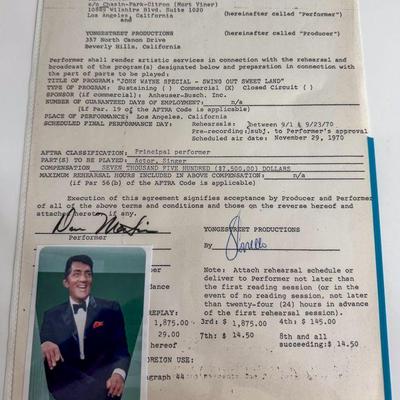 c/o Chasin-Park-Citron (Mort Viner)
10889 Wilshire Blvd. Suite 1020
Los Angeles, California (hereinafter called "Performer")
and
YONGESTREET PRODUCTIONS (hereinafter called "Producer")
357 North Canon Drive
Beverly Hills, California
Performer shall render artistic services in connection with the rehearsal and
broadcast of the program(s) designated below and preparation in connection with
the part or parts to be played:
TITLE OF PROGRAM: "JOHN WAYNE SPECIAL - SWING OUT SWEET LAND"
TYPE OF PROGRAM: Sustaining ( ) Commercial (X) Closed Circuit ( )
SPONSOR (if commercial): Anheuser-Busch, Inc.
NUMBER OF GUARANTEED DAYS OF EMPLOYMENT: n/a
(if Par. 19 of the AFTRA Code is applicable)
PLACE OF PERFORMANCE: Los Angeles, California
SCHEDULED FINAL PERFORMANCE DAY: Rehearsals: between 9/1 & 9/23/70
Pre-recording: subj. to Performer's approval
Scheduled air date: November 29, 1970
AFTRA CLASSIFICATION: Principal performer
PART(S) TO BE PLAYED: Actor, Singer
COMPENSATION SEVEN THOUSAND FIVE HUNDRED ($7,500.00) DOLLARS
MAXIMUM REHEARSAL HOURS INCLUDED IN ABOVE COMPENSATION: n/a
(if Par 56(b) of the AFTRA Code is applicable)
Execution of this agreement signifies acceptance by Producer and Performer
of all of the above terms and conditions and those on the reverse hereof and
attached hereto, if any.
Dean Martin YONGESTREET PRODUCTIONS
Performer By
Note: Attach rehearsal schedule
or deliver to Performer not later than
the first reading session (or in the
event of no reading session, not later
than twenty-four (24) hours in advance
of the first rehearsal session).
REPLAY:
1,875.00 3rd: $ 1,875.00 4th: $ 145.00
29.00 7th: $ 14.50 8th and all
hereof succeeding: $ 14.50
FOREIGN USE:
ragraph 44